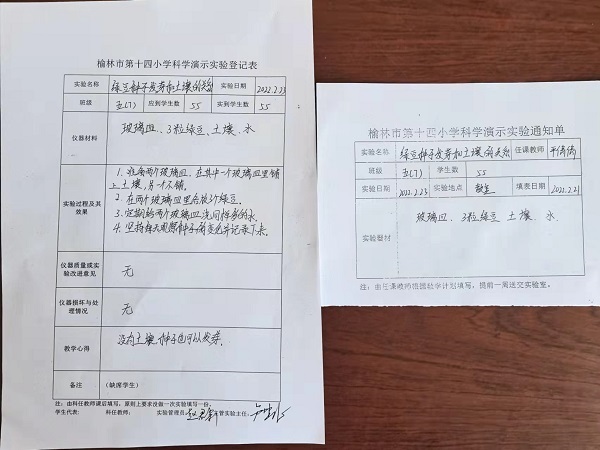 榆林市第十四小学科学演示实验登记表
实验名称 绿豆种子发芽和土壤的关系 实验日期 2022.2.23
班级 五(7) 应到学生数 55 实到学生数 55
仪器材料 玻璃皿、3粒绿豆、土壤、水
实验过程及其效果
1. 准备两个玻璃皿，在其中一个玻璃皿里铺
上土壤，另一个不铺。
2. 在两个玻璃皿里各放3粒绿豆。
3. 定期给两个玻璃皿浇同样多的水。
4. 坚持每天观察种子的变化并记录下来。
仪器质量或实验改进意见 无
仪器损坏与处理情况 无
教学心得 没有土壤，种子也可以发芽。
备注 （缺席学生）
注：由科任教师课后填写，原则上要求没做一次实验填写一份。
学生代表： 科任教师： 实验管理员： 管实验主任：
榆林市第十四小学科学演示实验通知单
实验名称 绿豆种子发芽和土壤的关系 任课教师
班级 五(7) 学生数 55
实验日期 2022.2.23 实验地点 教室 填表日期 2022.2.21
实验器材 玻璃皿、3粒绿豆 土壤、水
注：由任课教师根据教学计划填写，提前一周送交实验室。